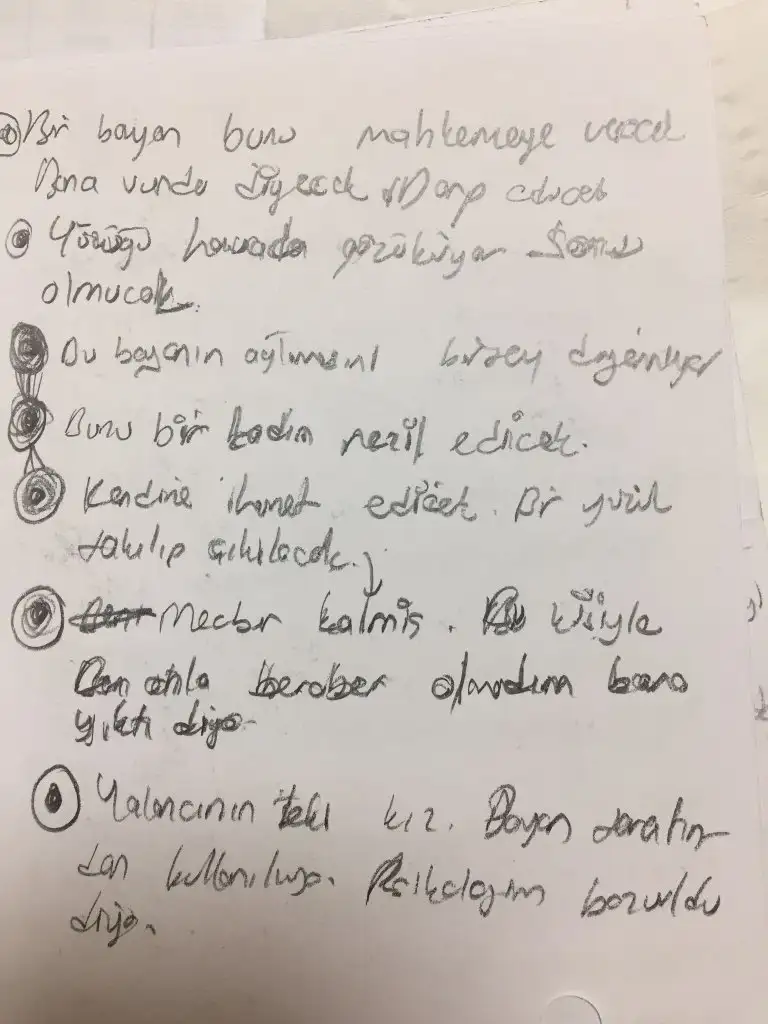 Bir bayan bunu mahkemeye verecek
Bana vurdu diyecek Darp edicek
Yüzüğü havada gözüküyor Sonu
olmucak.
Bu bayanın ağlaması birşey değişmiyor
Bunu bir kadın rezil edicek.
Kendine ihanet edicek. Bir yüzük
takılıp çıkılacak.
Mecbur kalmış. Bu kişiyle
Ben onla beraber olmadım bana
yıktı diyo.
Yalancının teki kız. Bayan tarafın-
dan kullanılıyo. Psikolojim bozuldu
diyo.